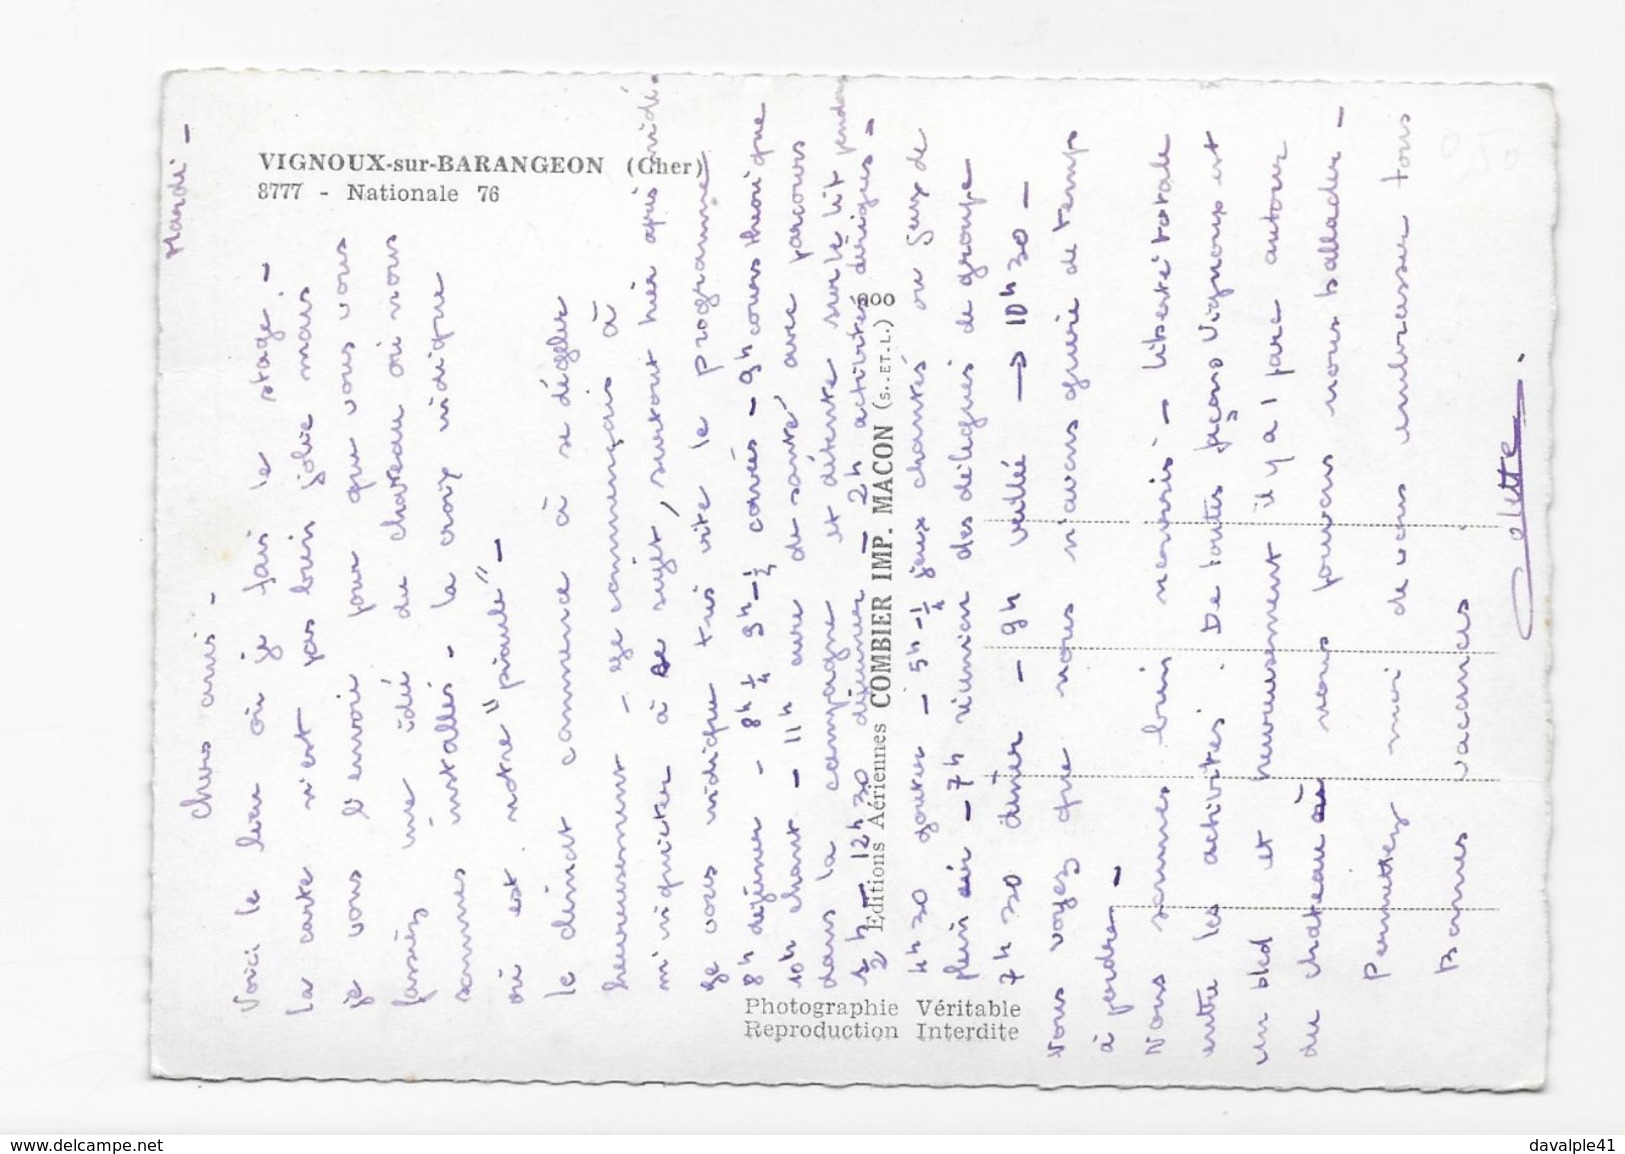 VIGNOUX-sur-BARANGEON (Cher)
8777 - Nationale 76
Mardi -
Chers amis -
Voici le lieu où je fais le stage. -
La carte n'est pas bien jolie mais
je vous l'envoie pour que vous vous
fassiez une idée du chateau où nous
sommes installés - la croix indique
où est notre "piaule" -
Le climat commence à se dégeler
heureusement - je commençais à
m'inquiéter à ce sujet, surtout hier après midi.
Je vous indique très vite le programme
8h déjeuner - 8h ¼ 9h - ¼ corvées - 9h cours théorique
10h chant - 11h cure de santé avec parcours
dans la campagne et détente sur le lit pendant
1h - 12h30 déjeuner - 2h activités dirigées -
4h30 gouter - 5h - ¼ jeux chantés ou jeux de
plein air - 7h réunion des délégués de groupe
7h30 diner - 9h veillée → 10h30 -
Vous voyez que nous n'avons guère de temps
à perdre -
Nous sommes bien nourris - liberté totale
entre les activités. De toutes façons Vignoux est
un bled et heureusement il y a 1 parc autour
du chateau où nous pouvons nous ballader -
Permettez moi de vous embrasser tous
Bonnes vacances.
Colette.
2 Editions Aériennes COMBIER IMP. MACON (S.-ET.L.)
Photographie Véritable
Reproduction Interdite
www.delcampe.net
davalple41